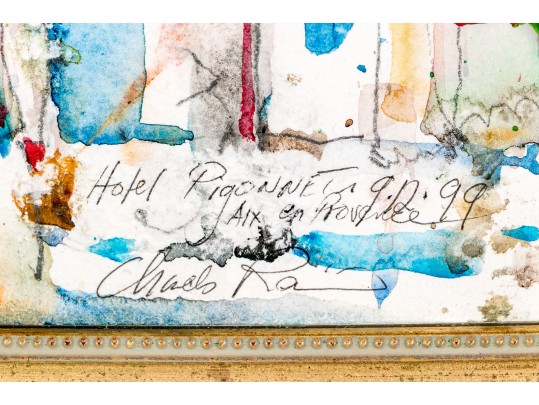 Hotel PIGONNET 9.17.99
AIX en Provence
Charles